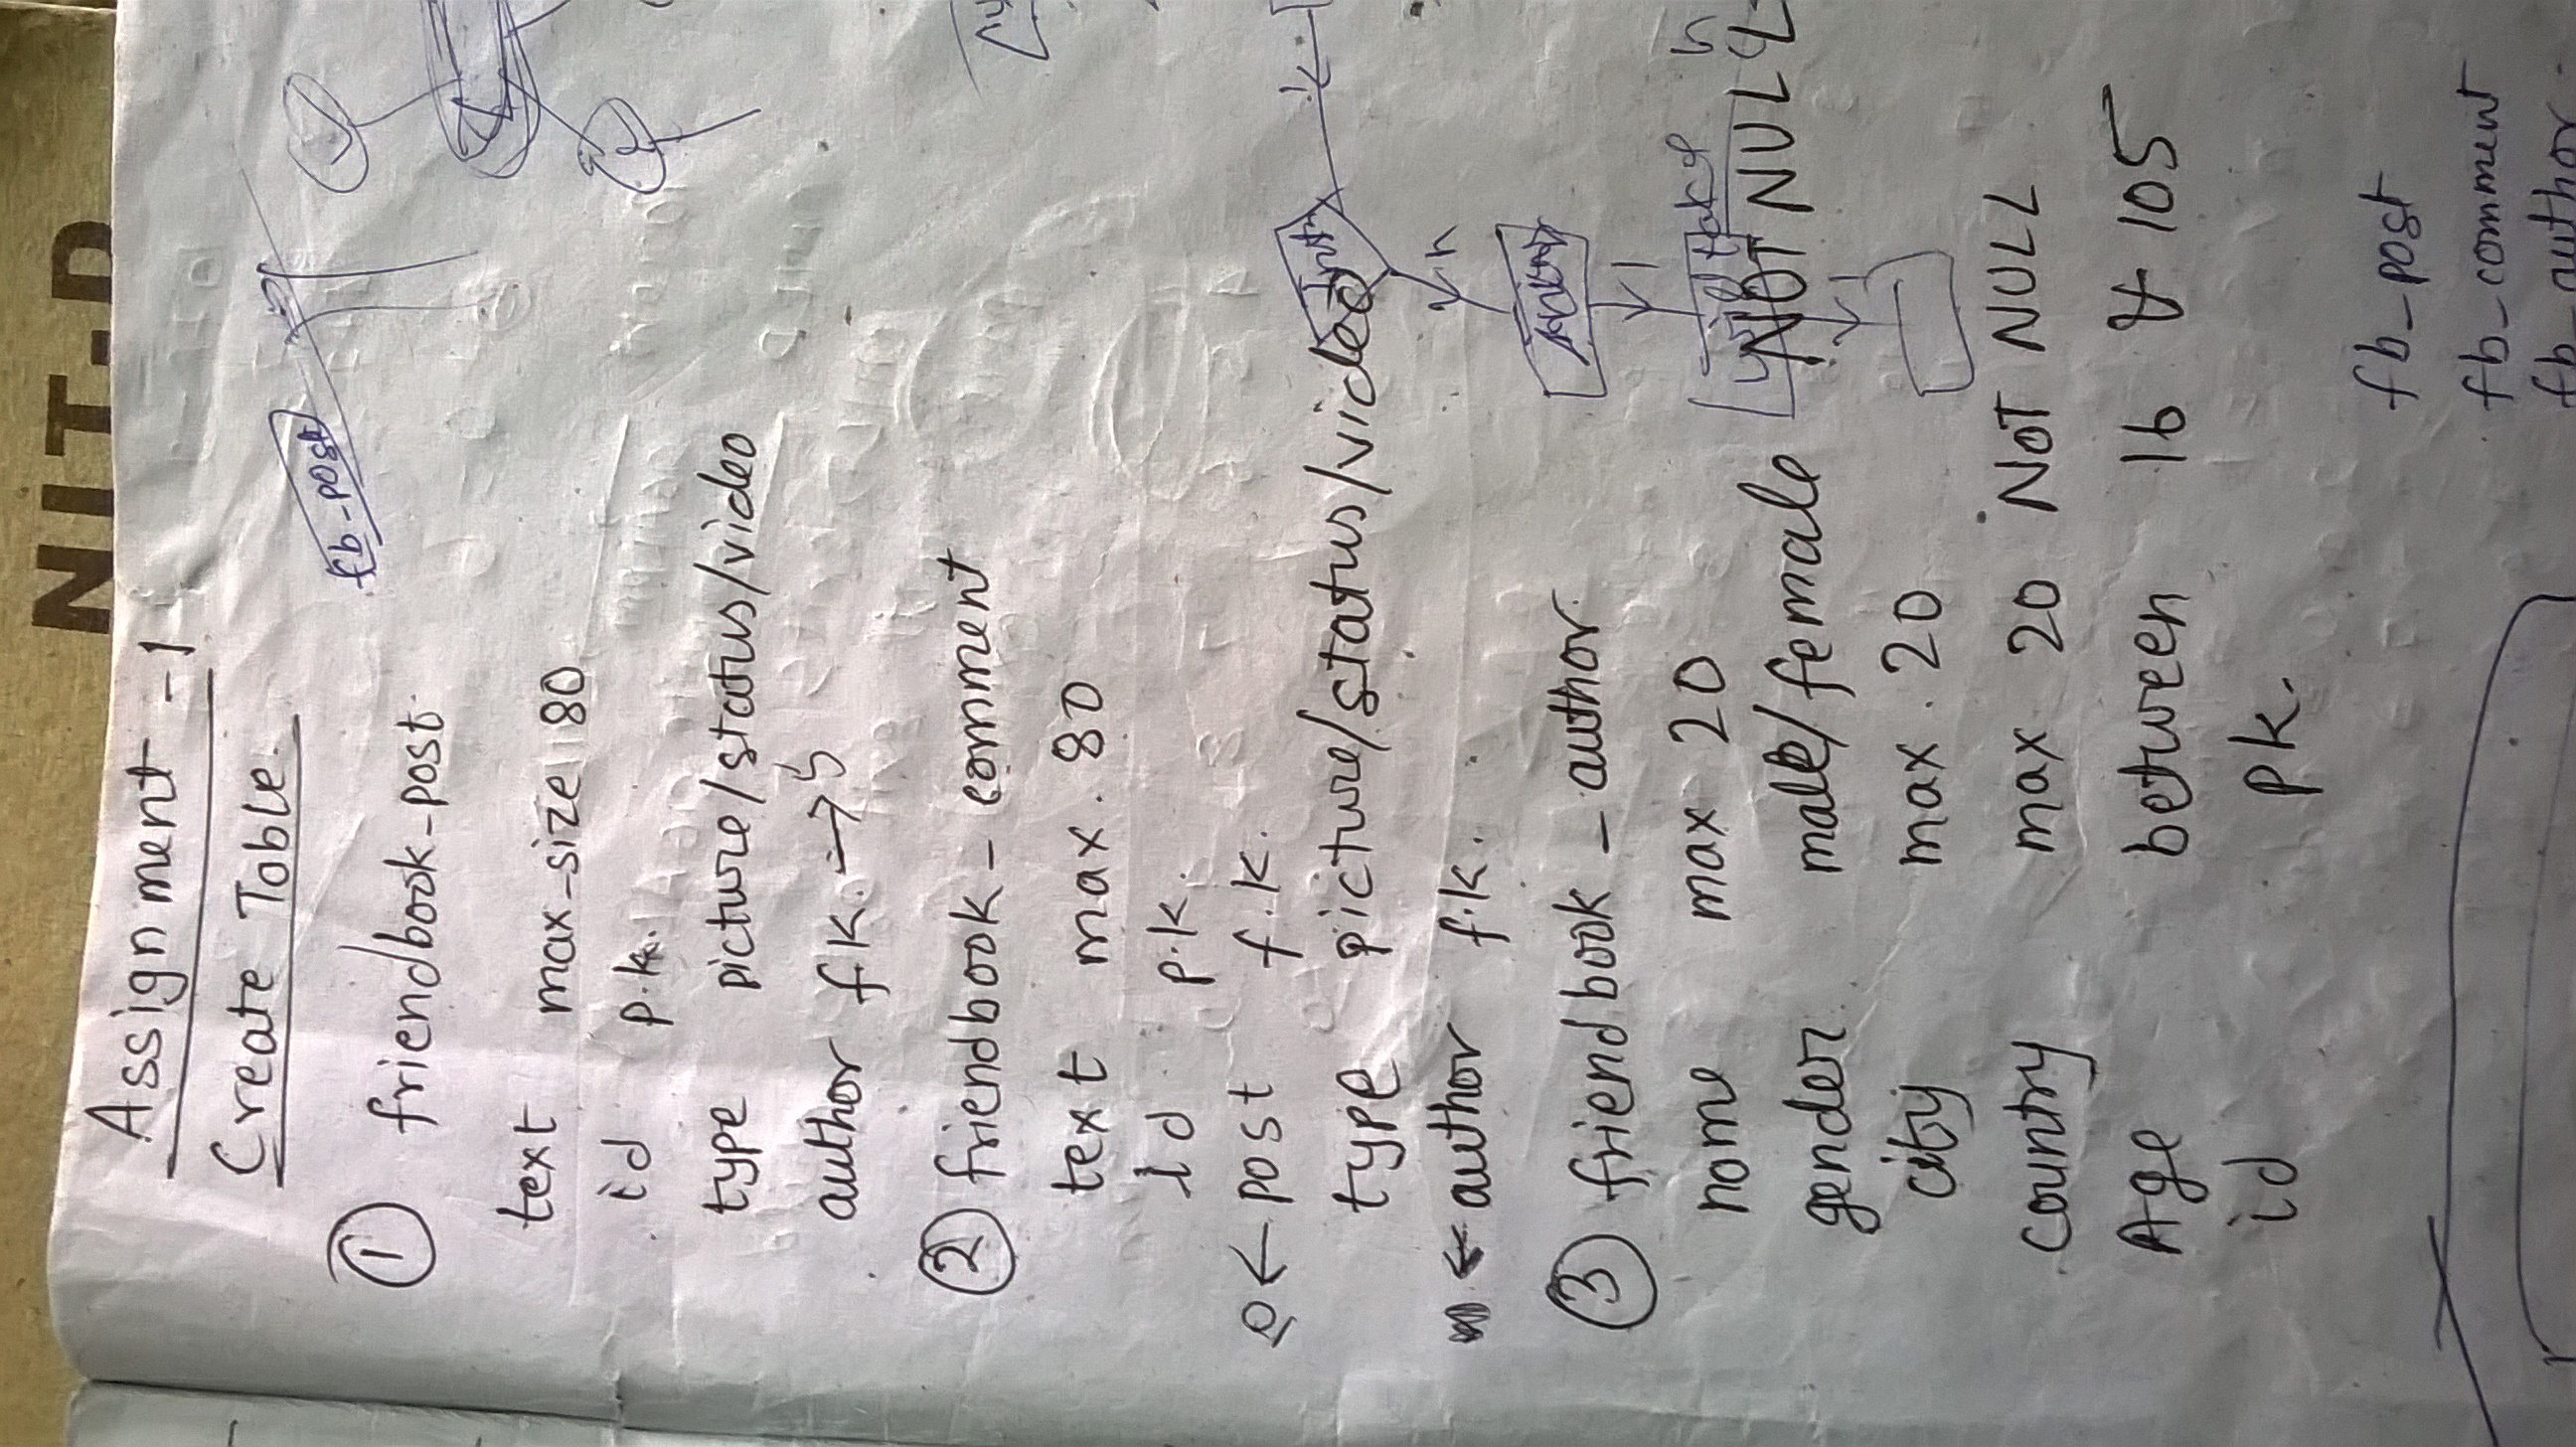 NIT-D
Assignment -1
Create Table
fb-post
① friendbook-post
text max-size 80
id p.k.
type picture/status/video
author f.k. → 5
② friendbook - comment
text max. 80
id p.k.
← post f.k.
type picture/status/video
← author f.k.
③ friendbook - author
name max 20
gender male/female NOT NULL
city max. 20
country max 20 NOT NULL
Age between 16 & 105
id pk.
fb-post
fb-comment
fb-author